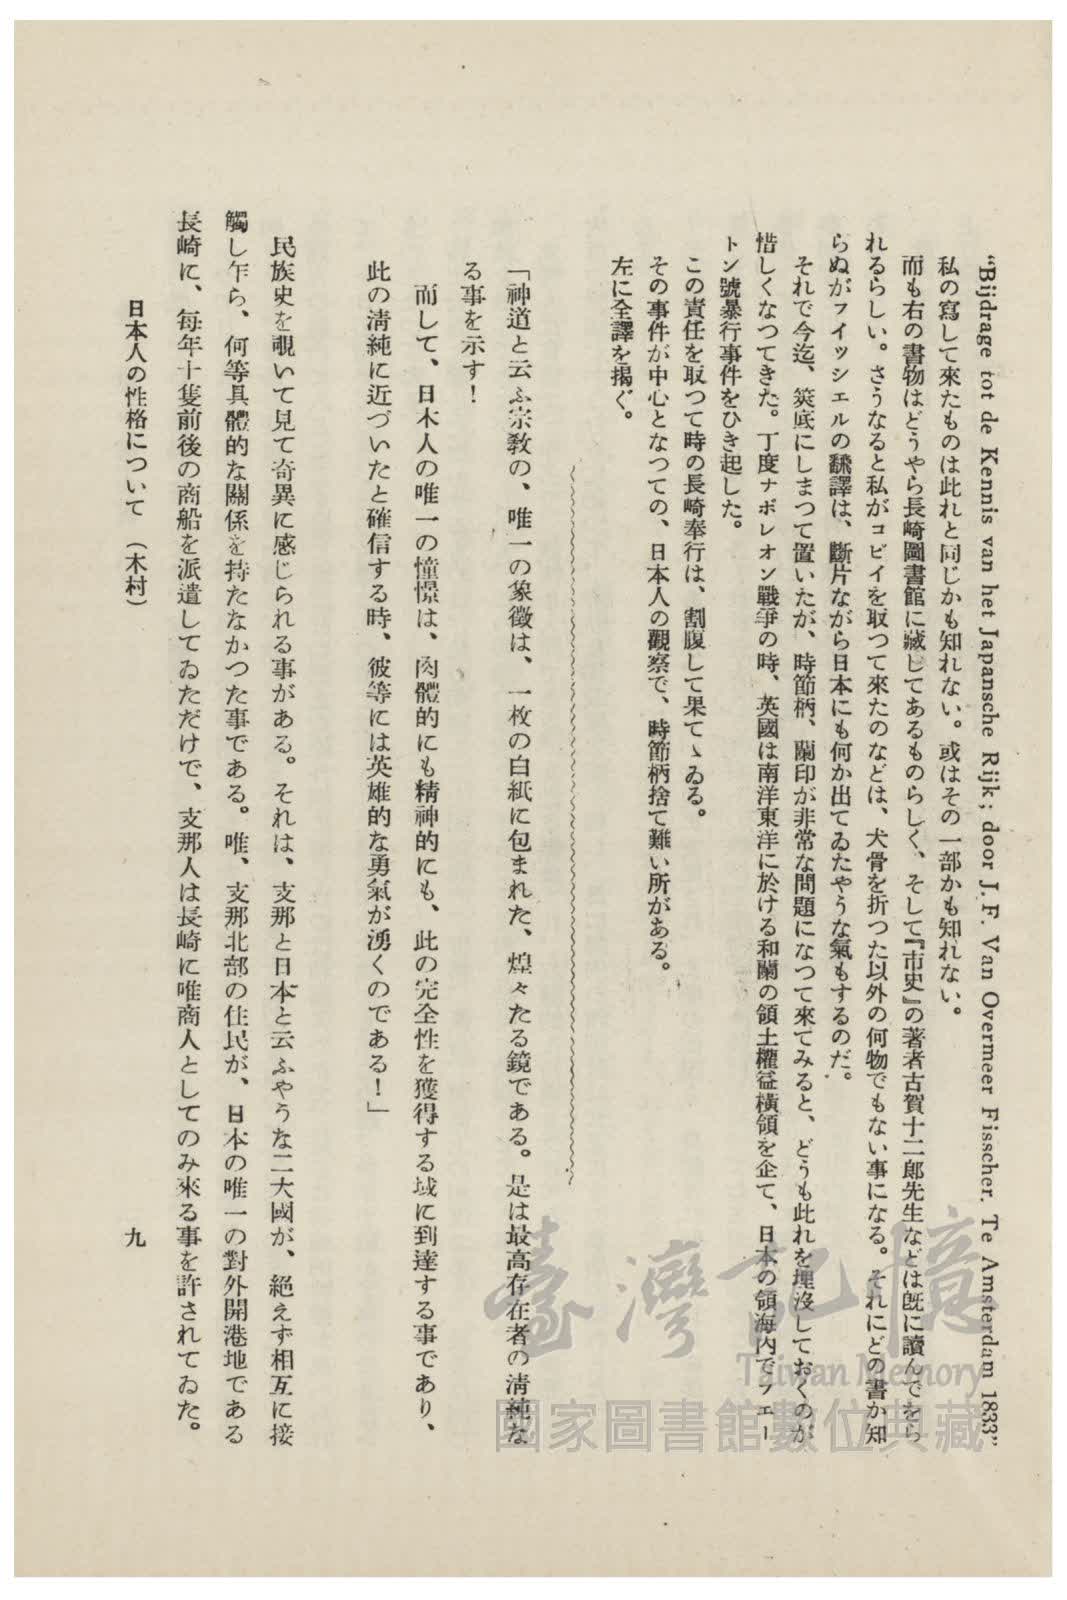 “Bijdrage tot de Kennis van het Japansche Rijk; door J. F. Van Overmeer Fisscher. Te Amsterdam 1833”
私の寫して來たものは此れと同じかも知れない。或はその一部かも知れない。
而も右の書物はどうやら長崎圖書館に藏してあるものらしく、そして『市史』の著者古賀十二郎先生などは既に讀んでをら
れるらしい。さうなると私がコピイを取つて來たのなどは、犬骨を折つた以外の何物でもない事になる。それにどの書か知
らぬがフイッシエルの飜譯は、斷片ながら日本にも何か出てゐたやうな氣もするのだ。
それで今迄、筴底にしまつて置いたが、時節柄、蘭印が非常な問題になつて來てみると、どうも此れを埋沒しておくのが
惜しくなつてきた。丁度ナポレオン戰爭の時、英國は南洋東洋に於ける和蘭の領土權益橫領を企て、日本の領海內でフエー
トン號暴行事件をひき起した。
この責任を取つて時の長崎奉行は、割腹して果てゝゐる。
その事件が中心となつての、日本人の觀察で、時節柄捨て難い所がある。
左に全譯を揭ぐ。
「神道と云ふ宗敎の、唯一の象徵は、一枚の白紙に包まれた、煌々たる鏡である。是は最高存在者の淸純な
る事を示す！
而して、日本人の唯一の憧憬は、肉體的にも精神的にも、此の完全性を獲得する域に到達する事であり、
此の淸純に近づいたと確信する時、彼等には英雄的な勇氣が湧くのである！」
民族史を覗いて見て奇異に感じられる事がある。それは、支那と日本と云ふやうな二大國が、絕えず相互に接
觸し乍ら、何等具體的な關係を持たなかつた事である。唯、支那北部の住民が、日本の唯一の對外開港地である
長崎に、每年十隻前後の商船を派遣してゐただけで、支那人は長崎に唯商人としてのみ來る事を許されてゐた。
日本人の性格について（木村）
九
臺灣記憶
Taiwan Memory
國家圖書館數位典藏